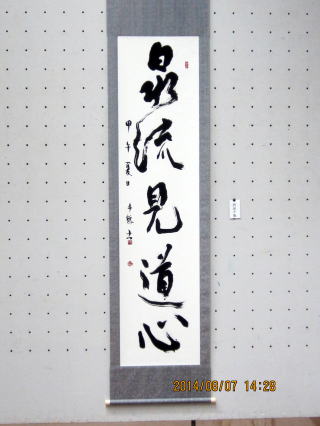 泉流見道心
甲午夏日
2014/08/07 14:28